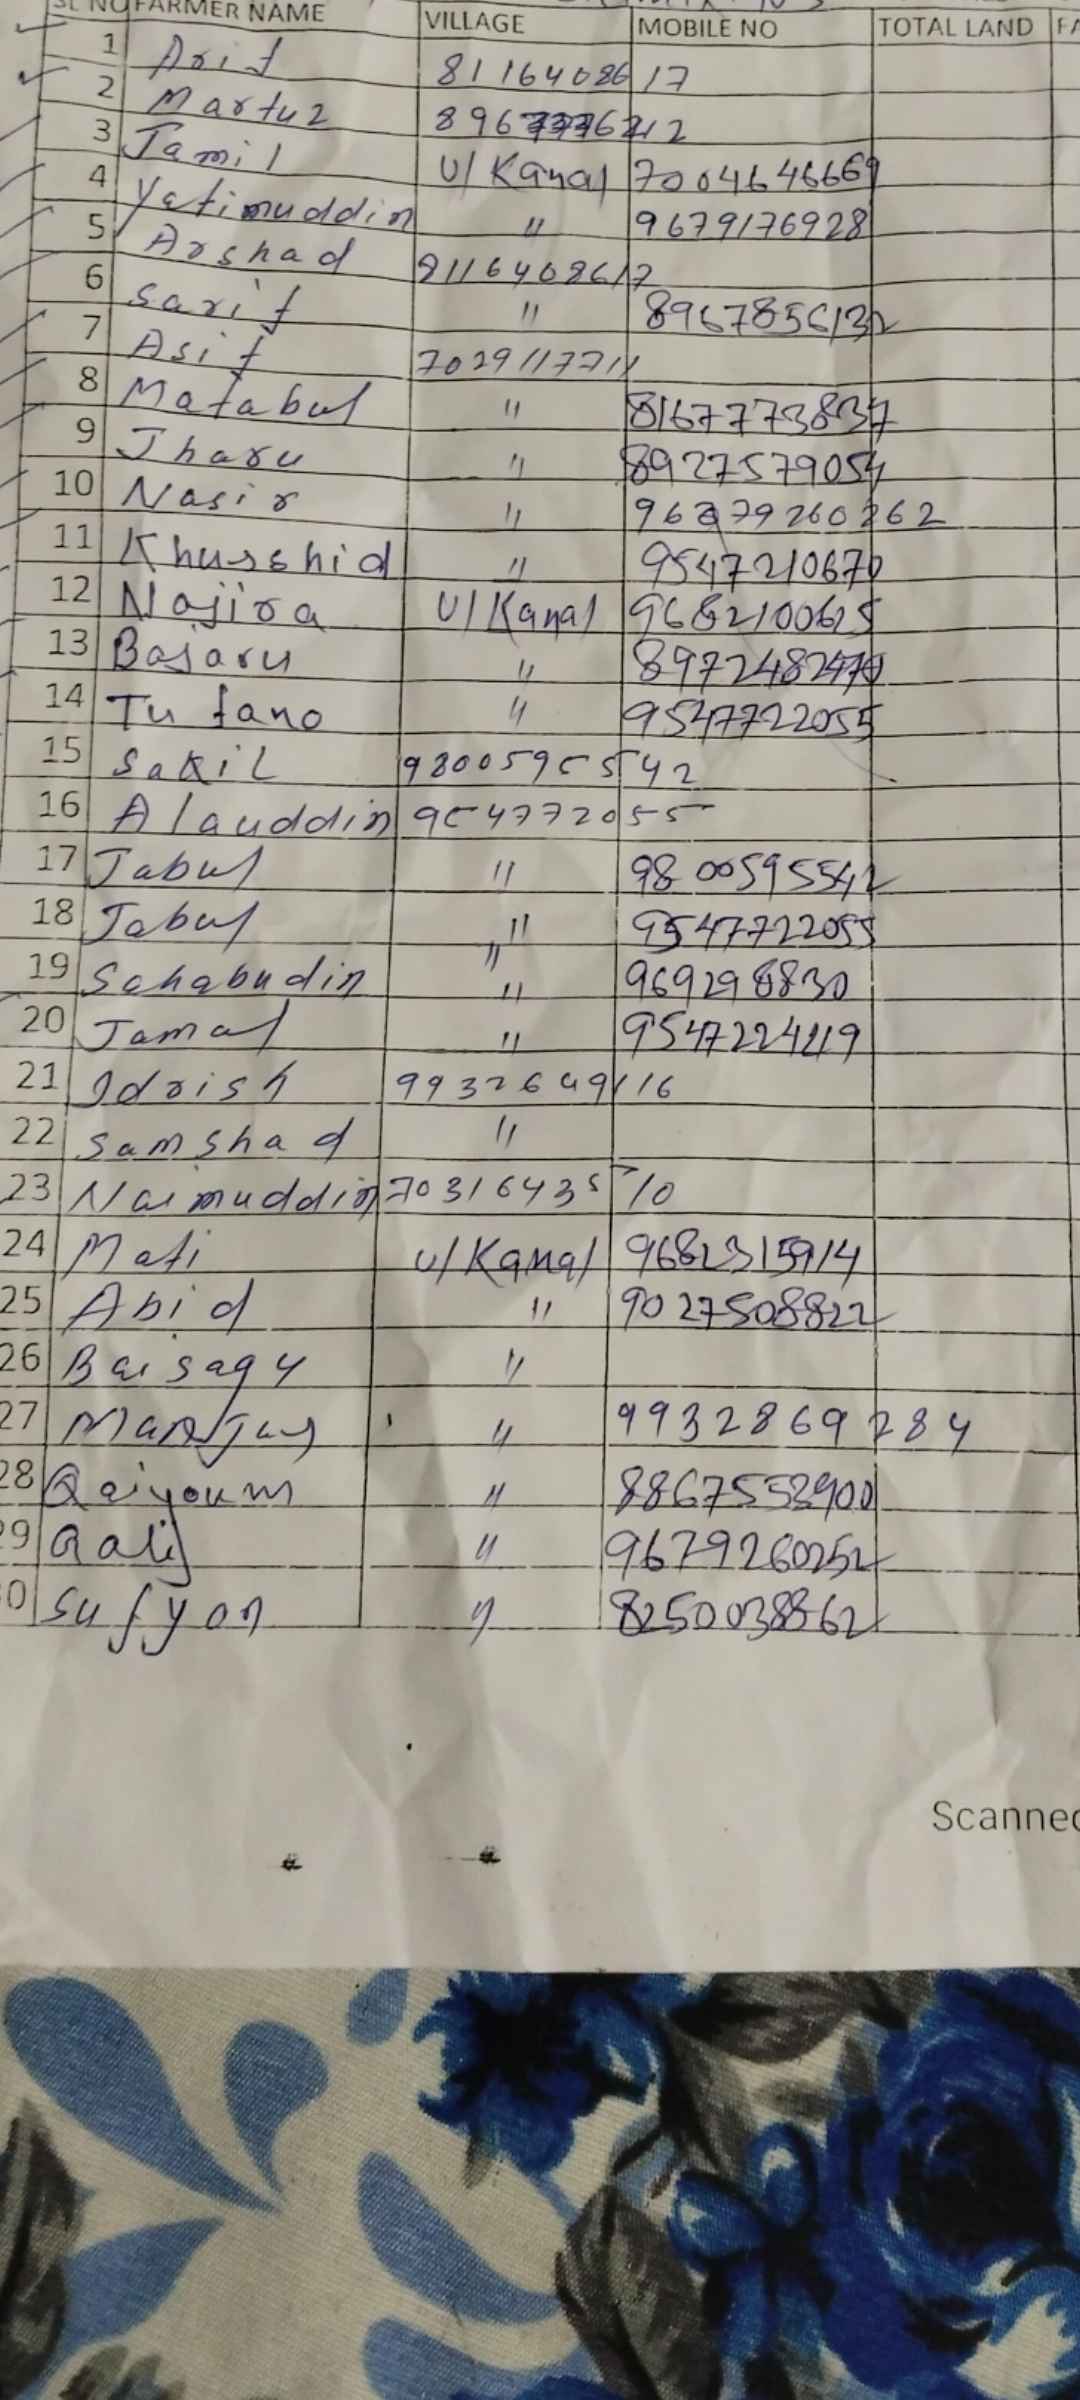 SL NO FARMER NAME VILLAGE MOBILE NO TOTAL LAND FA
1 Arif 8116408617
2 Martuz 896
3 Jamil U/Kanal 7004646669
4 Yatimuddin " 9679176928
5 Arshad 8116408617
6 Sarif " 8967856132
7 Asif 7029117711
8 Matabul " 8167773837
9 Jharu " 8927579054
10 Nasir "
11 Khurshid " 9547210670
12 Najira U/Kanal 9682100625
13 Bajaru " 8972482470
14 Tufano " 9547722055
15 Sakil 9800595542
16 Alauddin 954772055
17 Jabul " 9800595542
18 Jabul " 9547722055
"
19 Sahabudin " 969298830
20 Jamal " 9547224419
21 Idrish 9932649116
22 Samshad "
23 Naimuddin 7031643510
24 Mati U/Kanal 9682315914
25 Abid " 9027508822
26 Baisagu "
27 " 9932869284
28 Qaiyoum " 8867553900
29 " 9679260252
0 Sufyan " 8250038862
Scanned